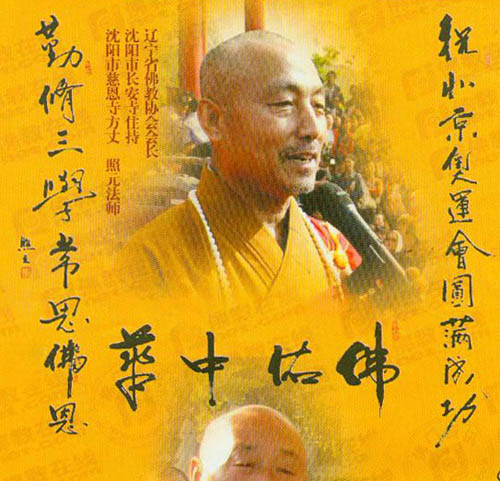 祝北京奥運會圓满成功
辽宁省佛教协会会长
沈阳市长安寺住持
沈阳市慈恩寺方丈 照元法师
勤修三學常思佛恩
照元
佛佑中華